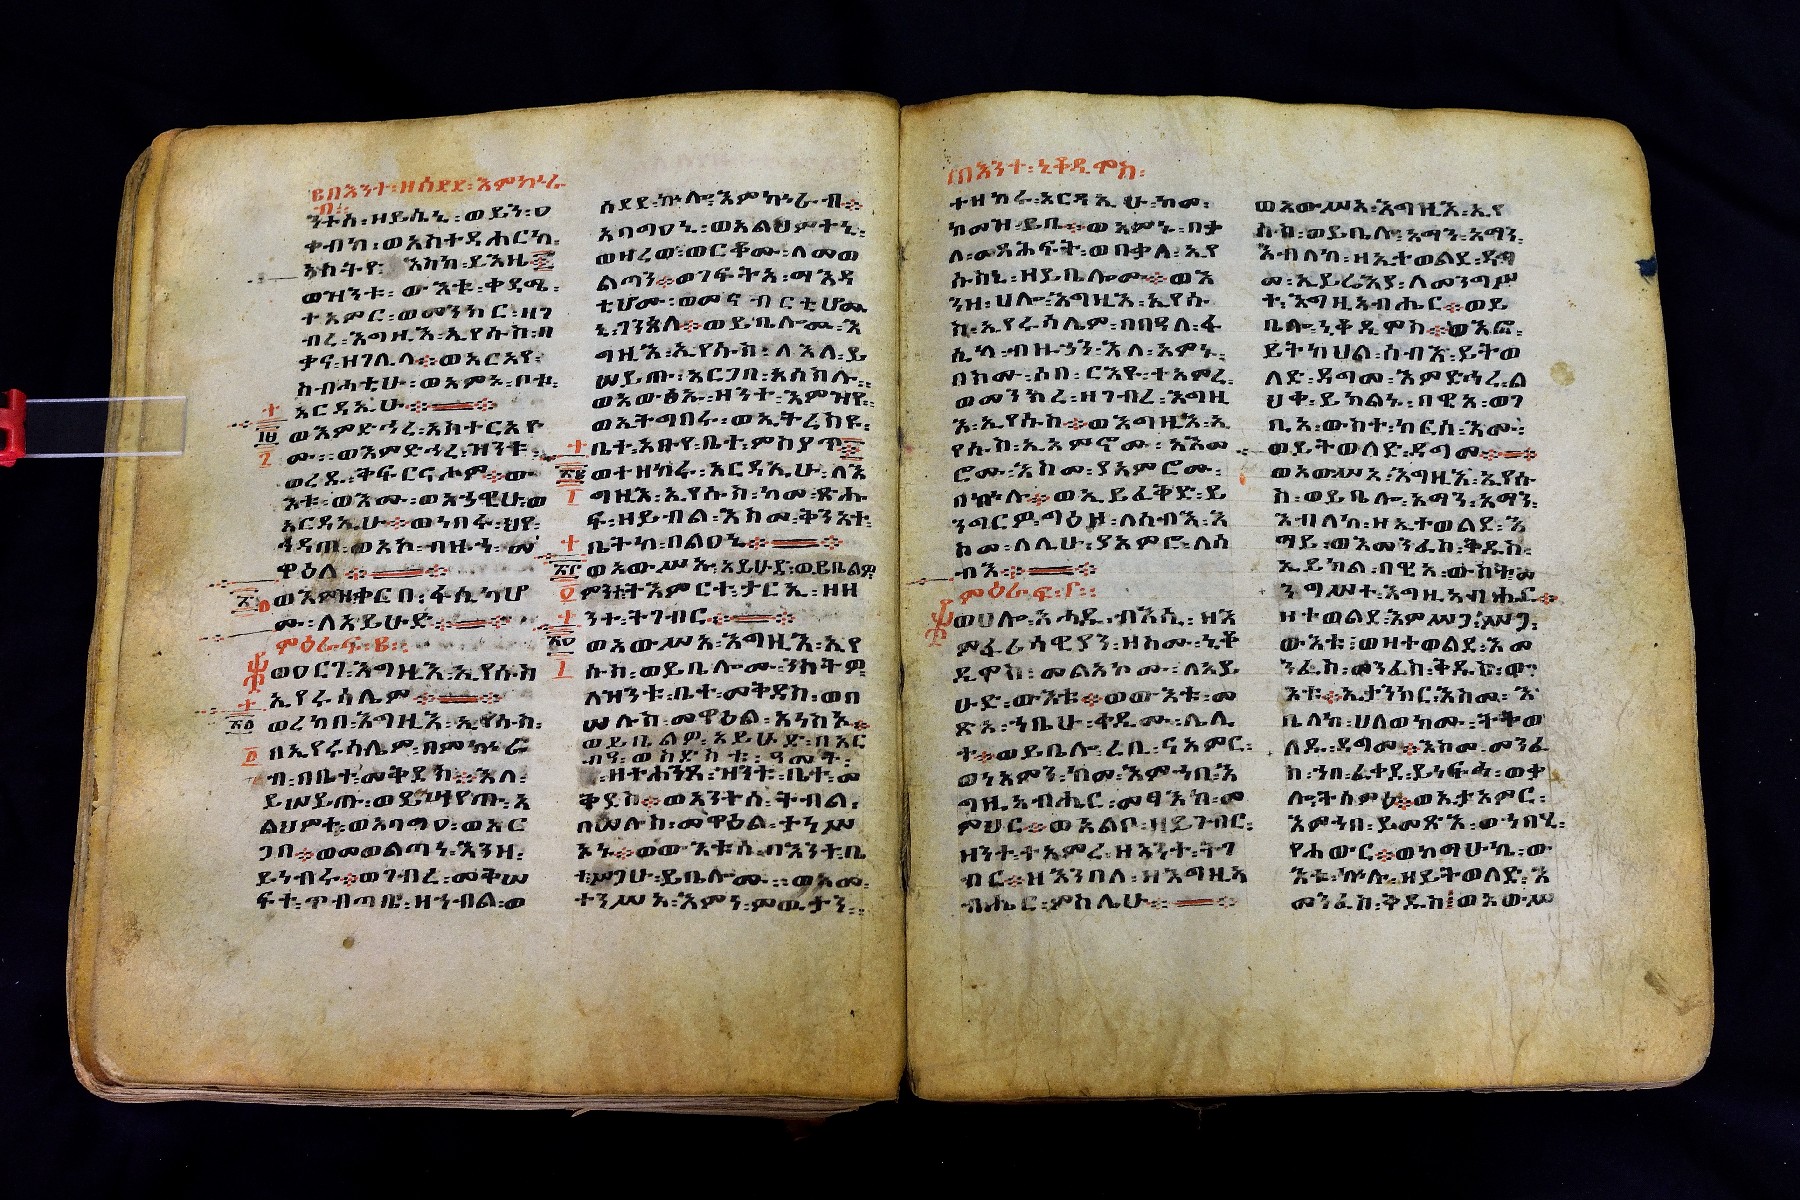 ፪በእንተ፡ዘሰደደ፡እምኵራ
ብ፡
ንተሰ፡ዘይሴኒ፡ወይን፡ዐ
ቀብከ፡ወአስተዳሐርከ፡
እስከ፡ይእዜ፨
ወዝንቱ፡ውእቱ፡ቀዳሚ፡
ተአምር፡ወመንክር፡ዘገ
ብረ፡እግዚእ፡ኢየሱስ፡በ
ቃና፡ዘገሊላ፨ወአርአየ፡
ስብሐቲሁ፡ወአምኑ፡ቦቱ፡
አርዳኢሁ፨
፲፱ ወእምድኅረ፡አስተርአዮ
ሙ፡ወእምድኅረ፡ዝንቱ፡
ወረደ፡ቅፍርናሖም፨ው
እቱ፡ወእሙ፡ወአኃዊሁ፡ወ
አርዳኢሁ፨ወነበሩ፡ህየ፡
ኅዳጠ፡ወአኮ፡ብዙኀ፡መ
ዋዕለ፨
፳ ወእምዝ፡ቀርበ፡ፋሲካሆ
ሙ፡ለአይሁድ፨
ምዕራፍ፡፪፡
ወዐርገ፡እግዚእ፡ኢየሱስ
ኢየሩሳሌም፨
፳፩ ወረከበ፡እግዚእ፡ኢየሱስ፡
በኢየሩሳሌም፡በምኵራ
ብ፡በቤተ፡መቅደስ፨እለ፡
ይሠይጡ፡ወይሣየጡ፡አ
ልህምተ፡ወአባግዐ፡ወአር
ጋበ፨ወመወልጣነ፡እንዘ፡
ይነብሩ፨ወገብረ፡መቅሠ
ፍተ፡ጥብጣቤ፡ዘኀብል፡ወ
ሰደደ፡ኵሎ፡እምኵራብ፨
አባግዐኒ፡ወአልህምተኒ፡
ወዘረወ፡ወርቆሙ፡ለመወ
ልጣን፨ወገፍትአ፡ማእዳ
ቲሆሙ፡ወመናብርቲሆሙ
ኒ፡ገንጰለ፨ወይቤሎሙ፡እ
ግዚእ፡ኢየሱስ፡ለእለ፡ይ
ሠይጡ፡አርጋበ፡አስከሉ፡
ወአውፅኡ፡ዘንተ፡እምዝየ፡
ወኢትግበሩ፡ወኢትረስዩ፡
ቤተ፡አቡየ፡ቤተ፡ምስያጥ፨
፳፪ ወተዘከሩ፡አርዳኢሁ፡ለእ
ግዚእ፡ኢየሱስ፡ከመ፡ጽሑ
ፍ፡ዘይብል፡እስመ፡ቅንአተ፡
ቤትከ፡በልዐኒ፨
፳፫ ወአውሥኡ፡አይሁድ፡ወይቤልዎ
ምንተ፡ትእምርተ፡ታርኢ፡ዘዘ
ንተ፡ትገብር፨
፳፬ ወአውሥአ፡እግዚእ፡ኢየ
ሱስ፡ወይቤሎሙ፡ንስትዎ
ለዝንቱ፡ቤተ፡መቅደስ፡ወበ
ሠሉስ፡መዋዕል፡አነሥኦ፨
ወይቤልዎ፡አይሁድ፡በአር
ብዓ፡ወስድስቱ፡ዓመት፡
ዘተሐንጸ፡ዝንቱ፡ቤተ፡መ
ቅደስ፨ወአንተሰ፡ትብል፡
በሠሉስ፡መዋዕል፡ተነሥ
እኑ፨ወውእቱሰ፡በእንተ፡ቤ
ተ፡ሥጋሁ፡ይቤሎሙ፡ወአመ፡
ተንሥአ፡እምነ፡ምዉታን፡
፫በእንተ፡ኒቆዲሞስ፡
ተዘከሩ፡አርዳኢሁ፡ከመ፡
ከመዝ፡ይቤ፨ወአምኑ፡በቃ
ለ፡መጻሕፍት፡ወበቃለ፡ኢየ
ሱስኒ፡ዘይቤሎሙ፨ወእ
ንዘ፡ሀሎ፡እግዚእ፡ኢየሱ
ስ፡ኢየሩሳሌም፡በበዓለ፡ፋ
ሲካ፡ብዙኃን፡እለ፡አምኑ፡
በስሙ፡ሶበ፡ርእዩ፡ተአምረ፡
ወመንክረ፡ዘገብረ፡እግዚ
እ፡ኢየሱስ፨ወእግዚእ፡ኢ
የሱስ፡ኢአምኖሙ፡እስመ
ሮሙ፡እስመ፡ያአምሮሙ፡
በኵሉ፨ወኢይፈቅድ፡ይ
ንግርዎ፡ግዕዘ፡ለሰብእ፡እ
ስመ፡ለሊሁ፡ያአምሮ፡ለሰ
ብእ፨
ምዕራፍ፡፫፡
ወሀሎ፡አሐዱ፡ብእሲ፡ዘእ
ምፈሪሳዊያን፡ዘስሙ፡ኒቆ
ዲሞስ፡መልአኮሙ፡ለአይ
ሁድ፡ውእቱ፨ወውእቱ፡መ
ጽአ፡ኀቤሁ፡ቀዲሙ፡ሌሊ
ተ፨ወይቤሎ፡ረቢ፡ናአምር፡
ወነአምን፡ከመ፡እምኀበ፡እ
ግዚአብሔር፡መፃእከ፡መ
ምህር፨ወአልቦ፡ዘይገብር፡
ዘንተ፡ተአምረ፡ዘአንተ፡ትገ
ብር፨ዘእንበለ፡ዘእግዚአ
ብሔር፡ምስሌሁ፨
ወአውሥአ፡እግዚእ፡ኢየ
ሱስ፡ወይቤሎ፡አማን፡አማን፡
እብለከ፡ዘኢተወልደ፡ዳግ
መ፡ኢይሬእያ፡ለመንግሥ
ተ፡እግዚአብሔር፨ወይ
ቤሎ፡ኒቆዲሞስ፨ወእፎ፡
ይትከህል፡ሰብእ፡ይትወ
ለድ፡ዳግመ፡እምድኅረ፡ል
ህቀ፡ይክልኑ፡በዊአ፡ወገ
ቢአ፡ውስተ፡ከርሠ፡እሙ፡
ወይትወለድ፡ዳግመ፨
ወአውሥአ፡እግዚእ፡ኢየሱ
ስ፡ወይቤሎ፡አማን፡አማን፡
እብለከ፡ዘኢተወልደ፡እ
ማይ፡ወእመንፈስ፡ቅዱስ፡
ኢይክል፡በዊአ፡ውስተ፡መ
ንግሥተ፡እግዚአብሔር፨
ዘተወልደ፡እምሥጋ፡ሥጋ፡
ውእቱ፡ወዘተወልደ፡እመ
ንፈስ፡መንፈስ፡ቅዱስ፡ው
እቱ፨ኢታንክር፡እስመ፡እ
ቤለከ፡ሀለወክሙ፡ትትወ
ለዱ፡ዳግመ፨እስመ፡መንፈ
ስ፡ኀበ፡ፈቀደ፡ይነፍኅ፡ወቃ
ሎ፡ትሰምዕ፨ወኢታአምር፡
እምኀበ፡ይመጽእ፡ወኀበሂ፡
የሐውር፨ወከማሁኬ፡ው
እቱ፡ኵሉ፡ዘይትወለድ፡እ
መንፈስ፡ቅዱስ፡ወአውሥ